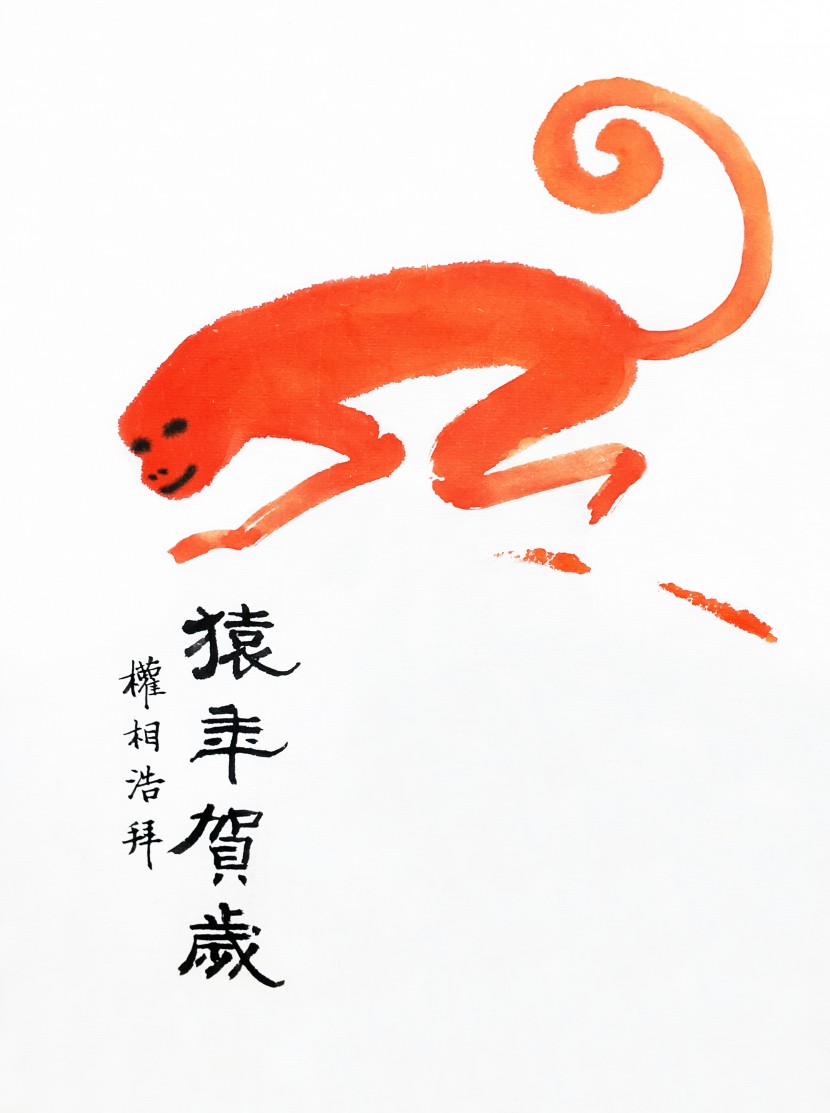 猿年賀歲
權相浩拜